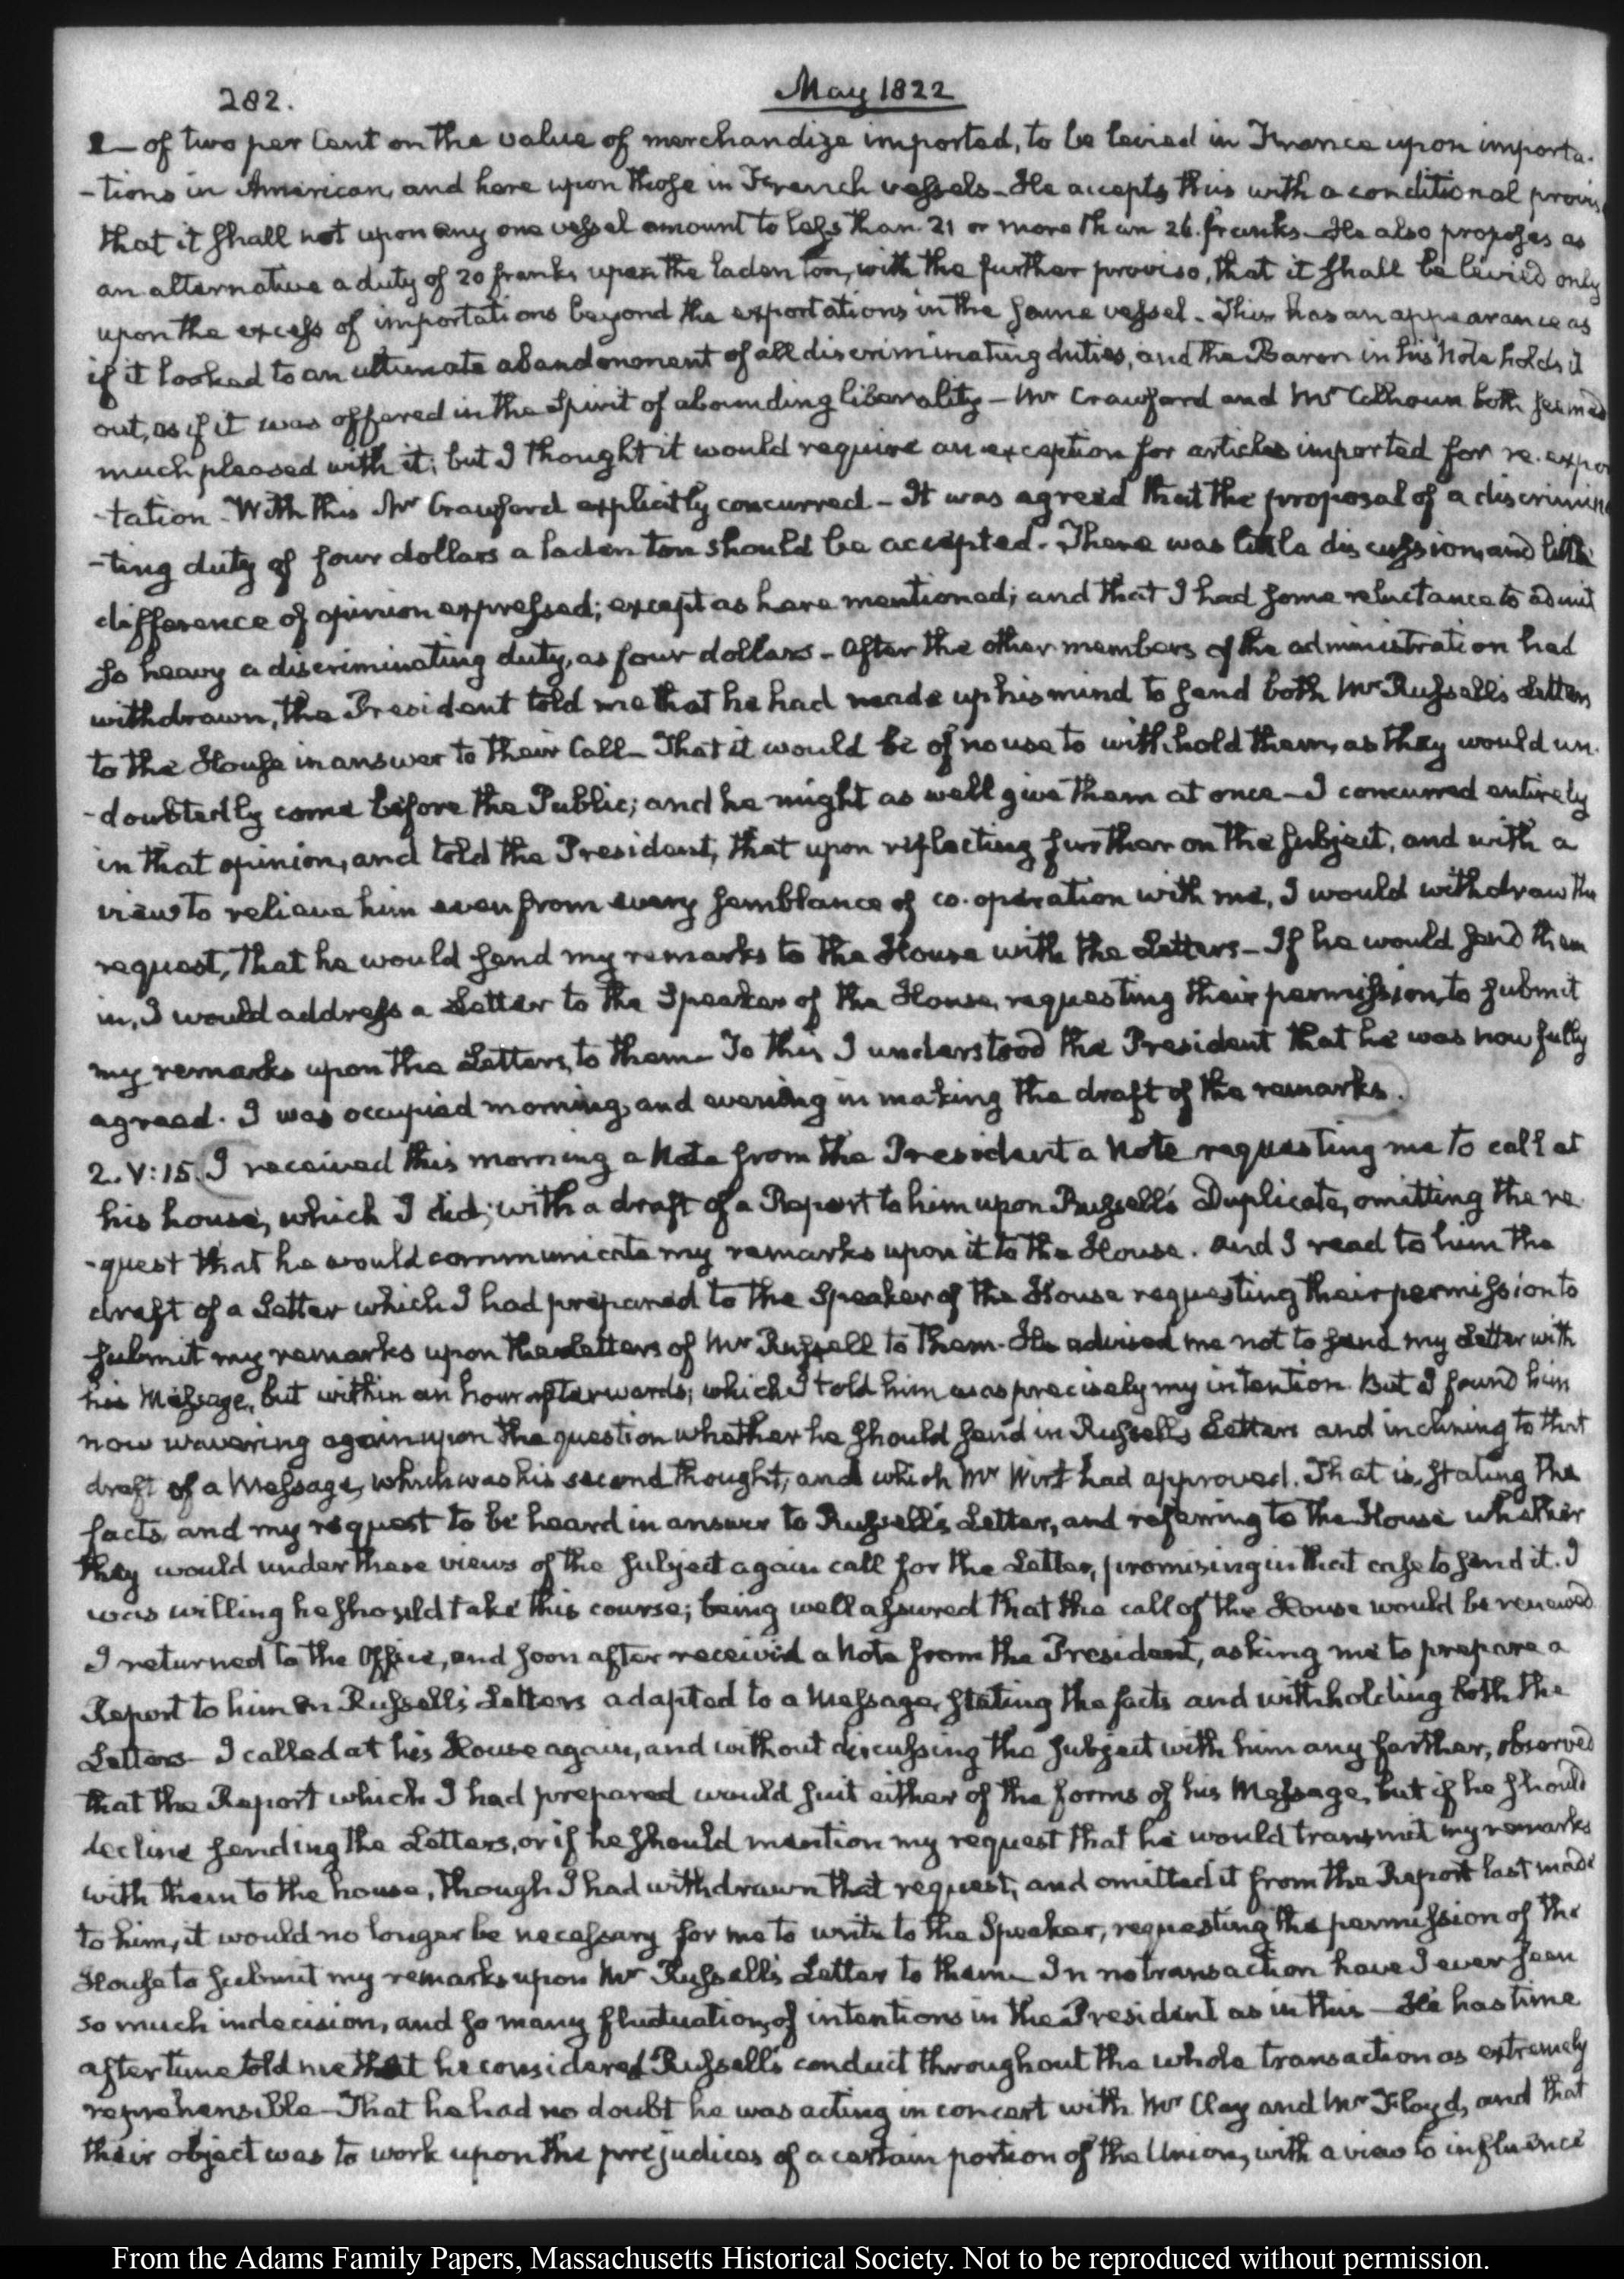 282.
May 1822
1— of two per Cent on the value of merchandize imported, to be levied in France upon importa-
-tions in American, and here upon those in French vessels— He accepts this with a conditional proviso
that it shall not upon any one vessel amount to less than 21 or more than 26. franks— He also proposes as
an alternative a duty of 20 franks upon the laden ton, with the further proviso, that it shall be levied only
upon the excess of importations beyond the exportations in the same vessel. This has an appearance as
if it looked to an ultimate abandonment of all discriminating duties, and the Baron in his Note holds it
out, as if it was offered in the Spirit of abounding liberality— Mr Crawford and Mr Calhoun both seemed
much pleased with it; but I thought it would require an exception for articles imported for re-expor
-tation— With this Mr Crawford explicitly concurred— It was agreed that the proposal of a discrimina
-ting duty of four dollars a laden ton should be accepted. There was little discussion, and little
difference of opinion expressed; except as here mentioned; and that I had some reluctance to admit
so heavy a discriminating duty, as four dollars— After the other members of the administration had
withdrawn, the President told me that he had made up his mind to send both Mr Russell's Letters
to the House in answer to their Call— That it would be of no use to withhold them, as they would un-
-doubtedly come before the Public; and he might as well give them at once— I concurred entirely
in that opinion, and told the President, that upon reflecting further on the subject, and with a
view to relieve him even from every semblance of co-operation with me, I would withdraw the
request, that he would send my remarks to the House with the Letters— If he would send them
in, I would address a Letter to the Speaker of the House, requesting their permission, to submit
my remarks upon the Letters, to them— To this I understood the President that he was now fully
agreed. I was occupied morning, and evening in making the draft of the remarks.
2. V:15. I received this morning a Note from the President a Note requesting me to call at
his house, which I did; with a draft of a Report to him upon Russell's Duplicate, omitting the re-
-quest that he would communicate my remarks upon it to the House. And I read to him the
draft of a Letter which I had prepared to the Speaker of the House requesting their permission to
submit my remarks upon the Letters of Mr Russell to them. He advised me not to send my Letter with
his Message, but within an hour afterwards; which I told him was precisely my intention. But I found him
now wavering again upon the question whether he should send in Russell's Letters and inclining to that
draft of a Message, which was his second thought, and which Mr Wirt had approved. That is, stating the
facts, and my request to be heard in answer to Russell's Letter, and referring to the House whether
they would under these views of the subject again call for the Letter, promising in that case to send it. I
was willing he should take this course; being well assured that the call of the House would be renewed
I returned to the Office, and soon after received a Note from the President, asking me to prepare a
Report to him on Russell's Letters adapted to a Message, stating the facts and withholding both the
Letters— I called at his House again, and without discussing the subject with him any farther, observed
that the Report which I had prepared would suit either of the forms of his Message, but if he should
decline sending the Letters, or if he should mention my request that he would transmit my remarks
with them to the house, though I had withdrawn that request, and omitted it from the Report last made
to him, it would no longer be necessary for me to write to the Speaker, requesting the permission of the
House to submit my remarks upon Mr Russell's Letter to them— In no transaction have I ever seen
so much indecision, and so many fluctuations of intentions in the President as in this— He has time
after time told me that he considered Russell's conduct throughout the whole transaction as extremely
reprehensible— That he had no doubt he was acting in concert with Mr Clay and Mr Floyd, and that
their object was to work upon the prejudices of a certain portion of the Union, with a view to influence
From the Adams Family Papers, Massachusetts Historical Society. Not to be reproduced without permission.